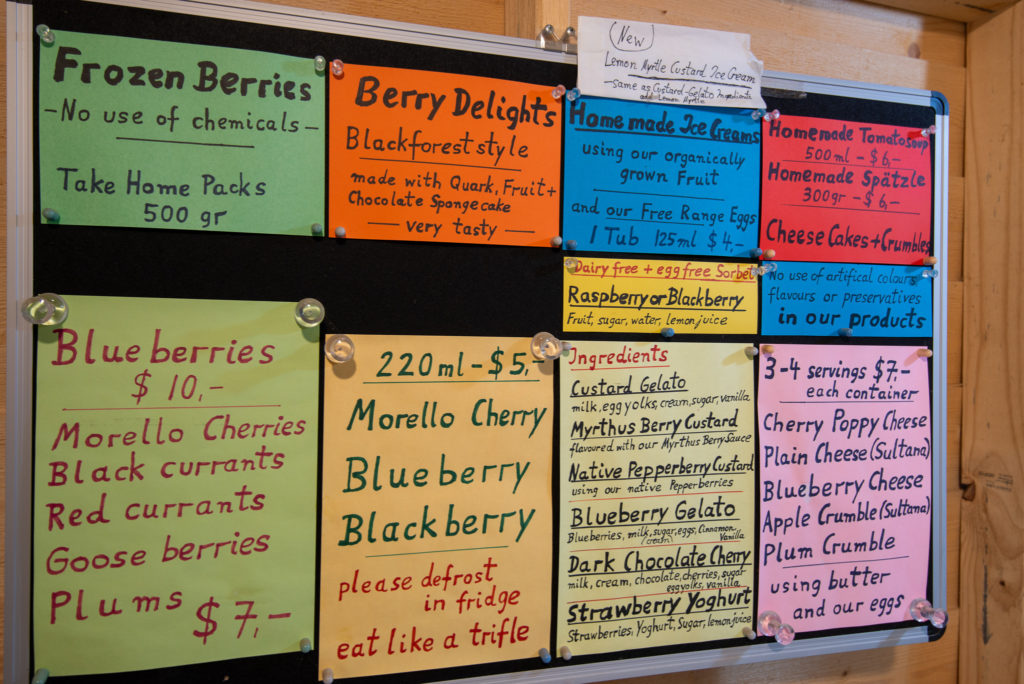 Frozen Berries
- No use of chemicals -
Take Home Packs
500 gr
Blueberries
$ 10,-
Morello Cherries
Black currants
Red currants
Goose berries
Plums $7,-
Berry Delights
Blackforest style
made with Quark, Fruit +
Chocolate Spongecake
— very tasty —
220 ml - $5,-
Morello Cherry
Blueberry
Blackberry
please defrost
in fridge
eat like a trifle
(New)
Lemon Myrtle Custard Ice Cream
- same as Custard-Gelato Ingredients
add Lemon Myrtle
Home made Ice Creams
using our organically
grown Fruit
and our Free Range Eggs
1 Tub 125 ml $4,-
Dairy free + egg free Sorbet
Raspberry or Blackberry
Fruit, sugar, water, lemon juice
Ingredients
Custard Gelato
milk, egg yolks, cream, sugar, vanilla
Myrthus Berry Custard
flavoured with our Myrthus Berry Sauce
Native Pepperberry Custard
using our native Pepperberries
Blueberry Gelato
Blueberries, milk, sugar, eggs, Cinnamon
(cream) Vanilla
Dark Chocolate Cherry
milk, cream, chocolate, cherries, sugar
egg yolks, vanilla
Strawberry Yoghurt
Strawberries, Yoghurt, Sugar, lemon juice
Homemade Tomatosoup
500 ml - $6,-
Homemade Spätzle
300gr - $6,-
Cheese Cakes + Crumbles
No use of artifical colours
flavours or preservatives
in our products
3-4 servings $7,-
each container
Cherry Poppy Cheese
Plain Cheese (Sultana)
Blueberry Cheese
Apple Crumble (Sultana)
Plum Crumble
using butter
and our eggs